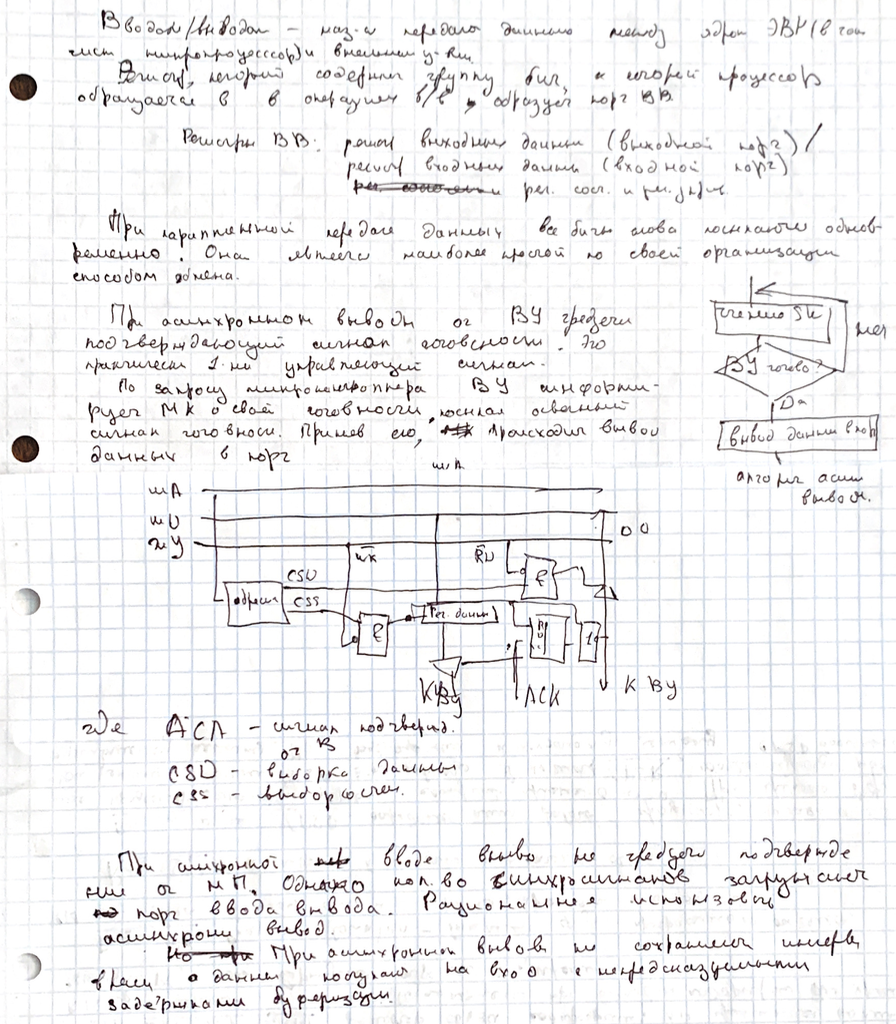 Вводом/выводом – наз-ся передача данных между ядром ЭВМ (в том
числ микропроцессор) и внешними у-ми
Регистр, который содержит группу бит, к которой процессор
обращается в в операциях в/в, образует порт ВВ.
Регистры ВВ: регистр выходных данных (выходной порт) /
регистр входных данных (входной порт)
рег. сост. и рег. упр.
При параллельной передаче данных все биты слова посылаются однов-
ременно. Она является наиболее простой по своей организации
способом обмена.
При асинхронном выводе от ВУ требуется
подтверждающий сигнал готовности. Это
практически 1-й управляющий сигнал.
По запросу микроконтроллера ВУ информи-
рует МК о своей готовности, посылая
сигнал готовности. Приняв его, происходит вывод
данных в порт
чтение SR
нет
ВУ готово?
Да
вывод данных в порт
алгоритм асин
вывода.
ША
ША
ШД
ШУ
WR
RD
CSD
CSS
&
&
Рег. данных
1
К ВУ
ACK
К ВУ
где ACK – сигнал подтвержд.
от В
CSD – выборка данных
CSS – выбор
При синхронной вводе вывод не требует подтвержде
ния от МП. Однако кол. во синхросигналов загружает
порт ввода вывода. Рациональнее использовать
асинхронн вывод.
При асинхронном выводе не сохраняется интервал
данные поступают на вход с непредсказуемыми
задержками буферизации.